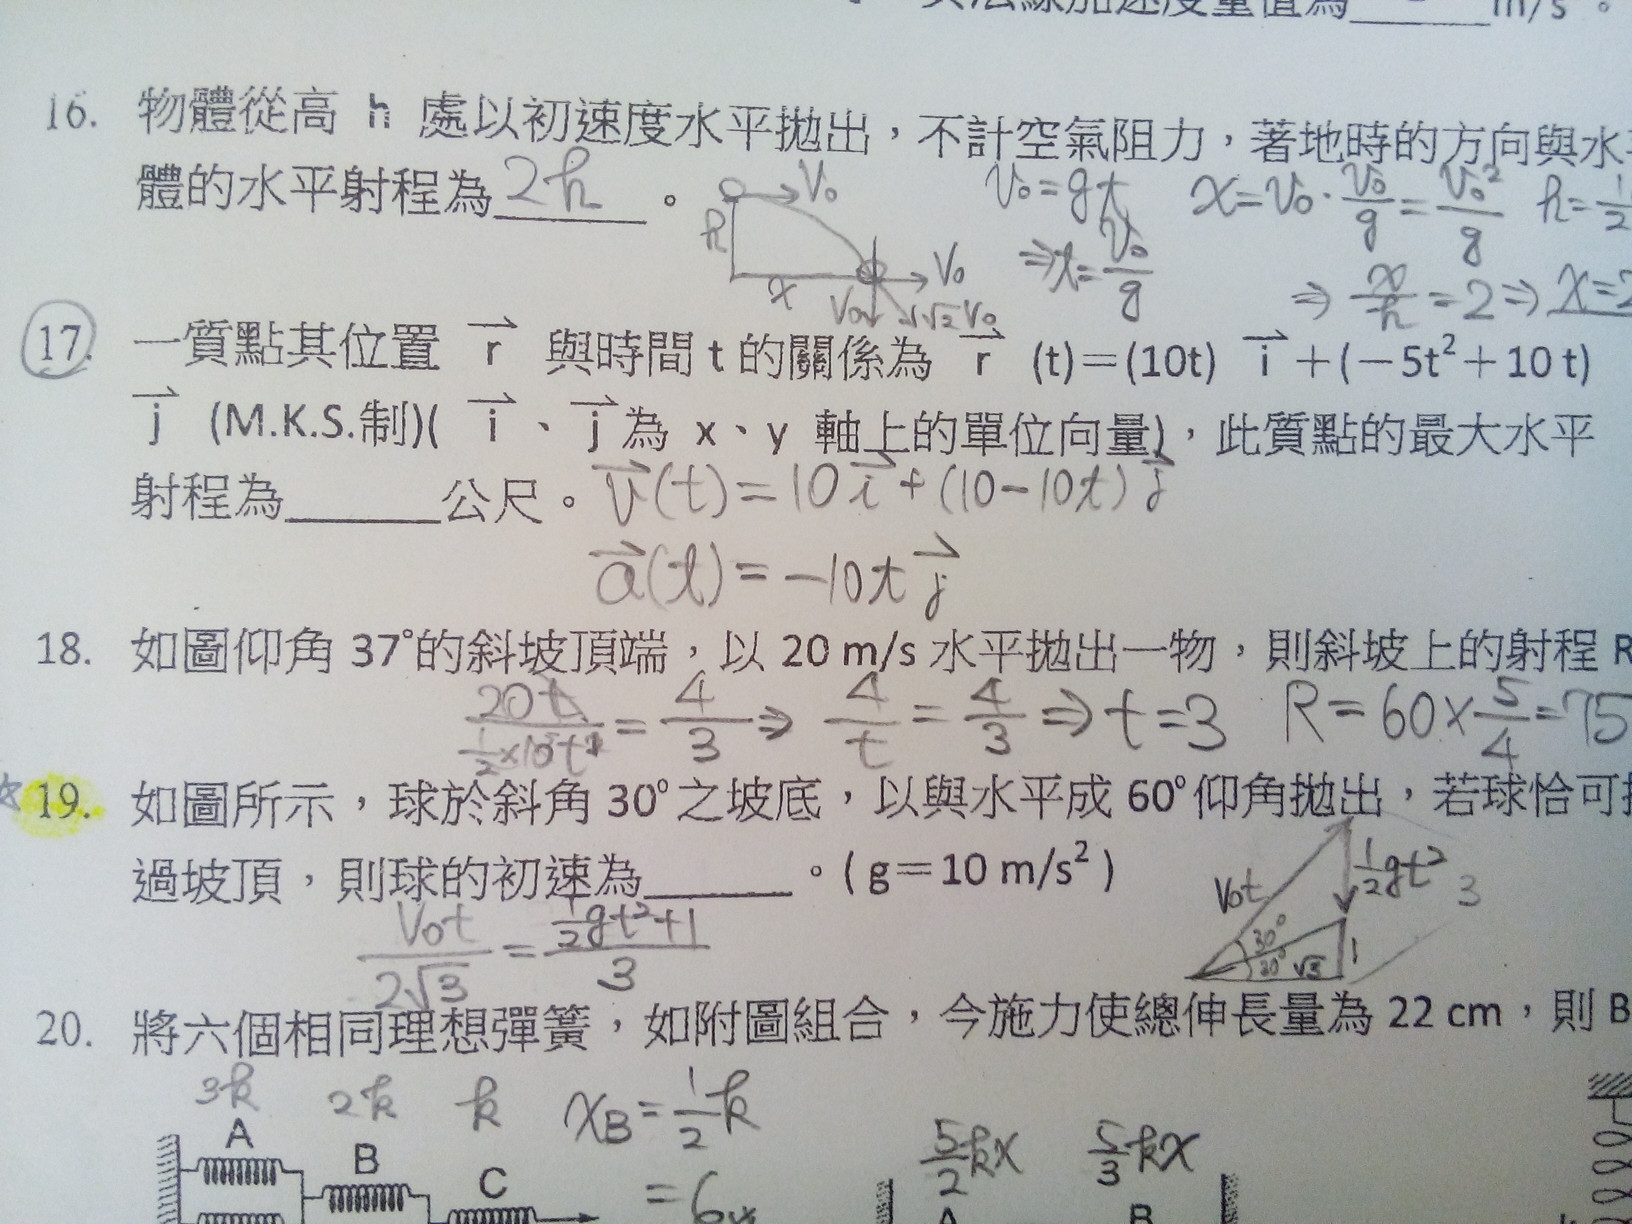 m/s 。
16. 物體從高 h 處以初速度水平拋出，不計空氣阻力，著地時的方向與水
體的水平射程為 2h 。
V₀ h x V₀ V₀ √2V₀
V₀=gt
⇒t=V₀/g
x=V₀·V₀/g=V₀²/g
⇒ x/h=2⇒
17. 一質點其位置 r⃗ 與時間 t 的關係為 r⃗ (t)＝(10t) i⃗ ＋(－5t²＋10 t)
j⃗ (M.K.S.制)( i⃗ 、 j⃗ 為 x、y 軸上的單位向量)，此質點的最大水平
射程為______公尺。 v⃗(t)=10i⃗+(10-10t)j⃗
a⃗(t)=-10t j⃗
18. 如圖仰角 37°的斜坡頂端，以 20 m/s 水平拋出一物，則斜坡上的射程 R
20t/(½×10t²)=4/3⇒ 4/t=4/3⇒t=3 R=60×5/4=75
19. 如圖所示，球於斜角 30°之坡底，以與水平成 60°仰角拋出，若球恰可
過坡頂，則球的初速為______。( g＝10 m/s² )
V₀t ½gt² 3 30° 30° √3 1
V₀t/2√3=(½gt²+1)/3
20. 將六個相同理想彈簧，如附圖組合，今施力使總伸長量為 22 cm，則 B
3k 2k k x_B=½k
A B C
5/2kx 5/3kx
A B